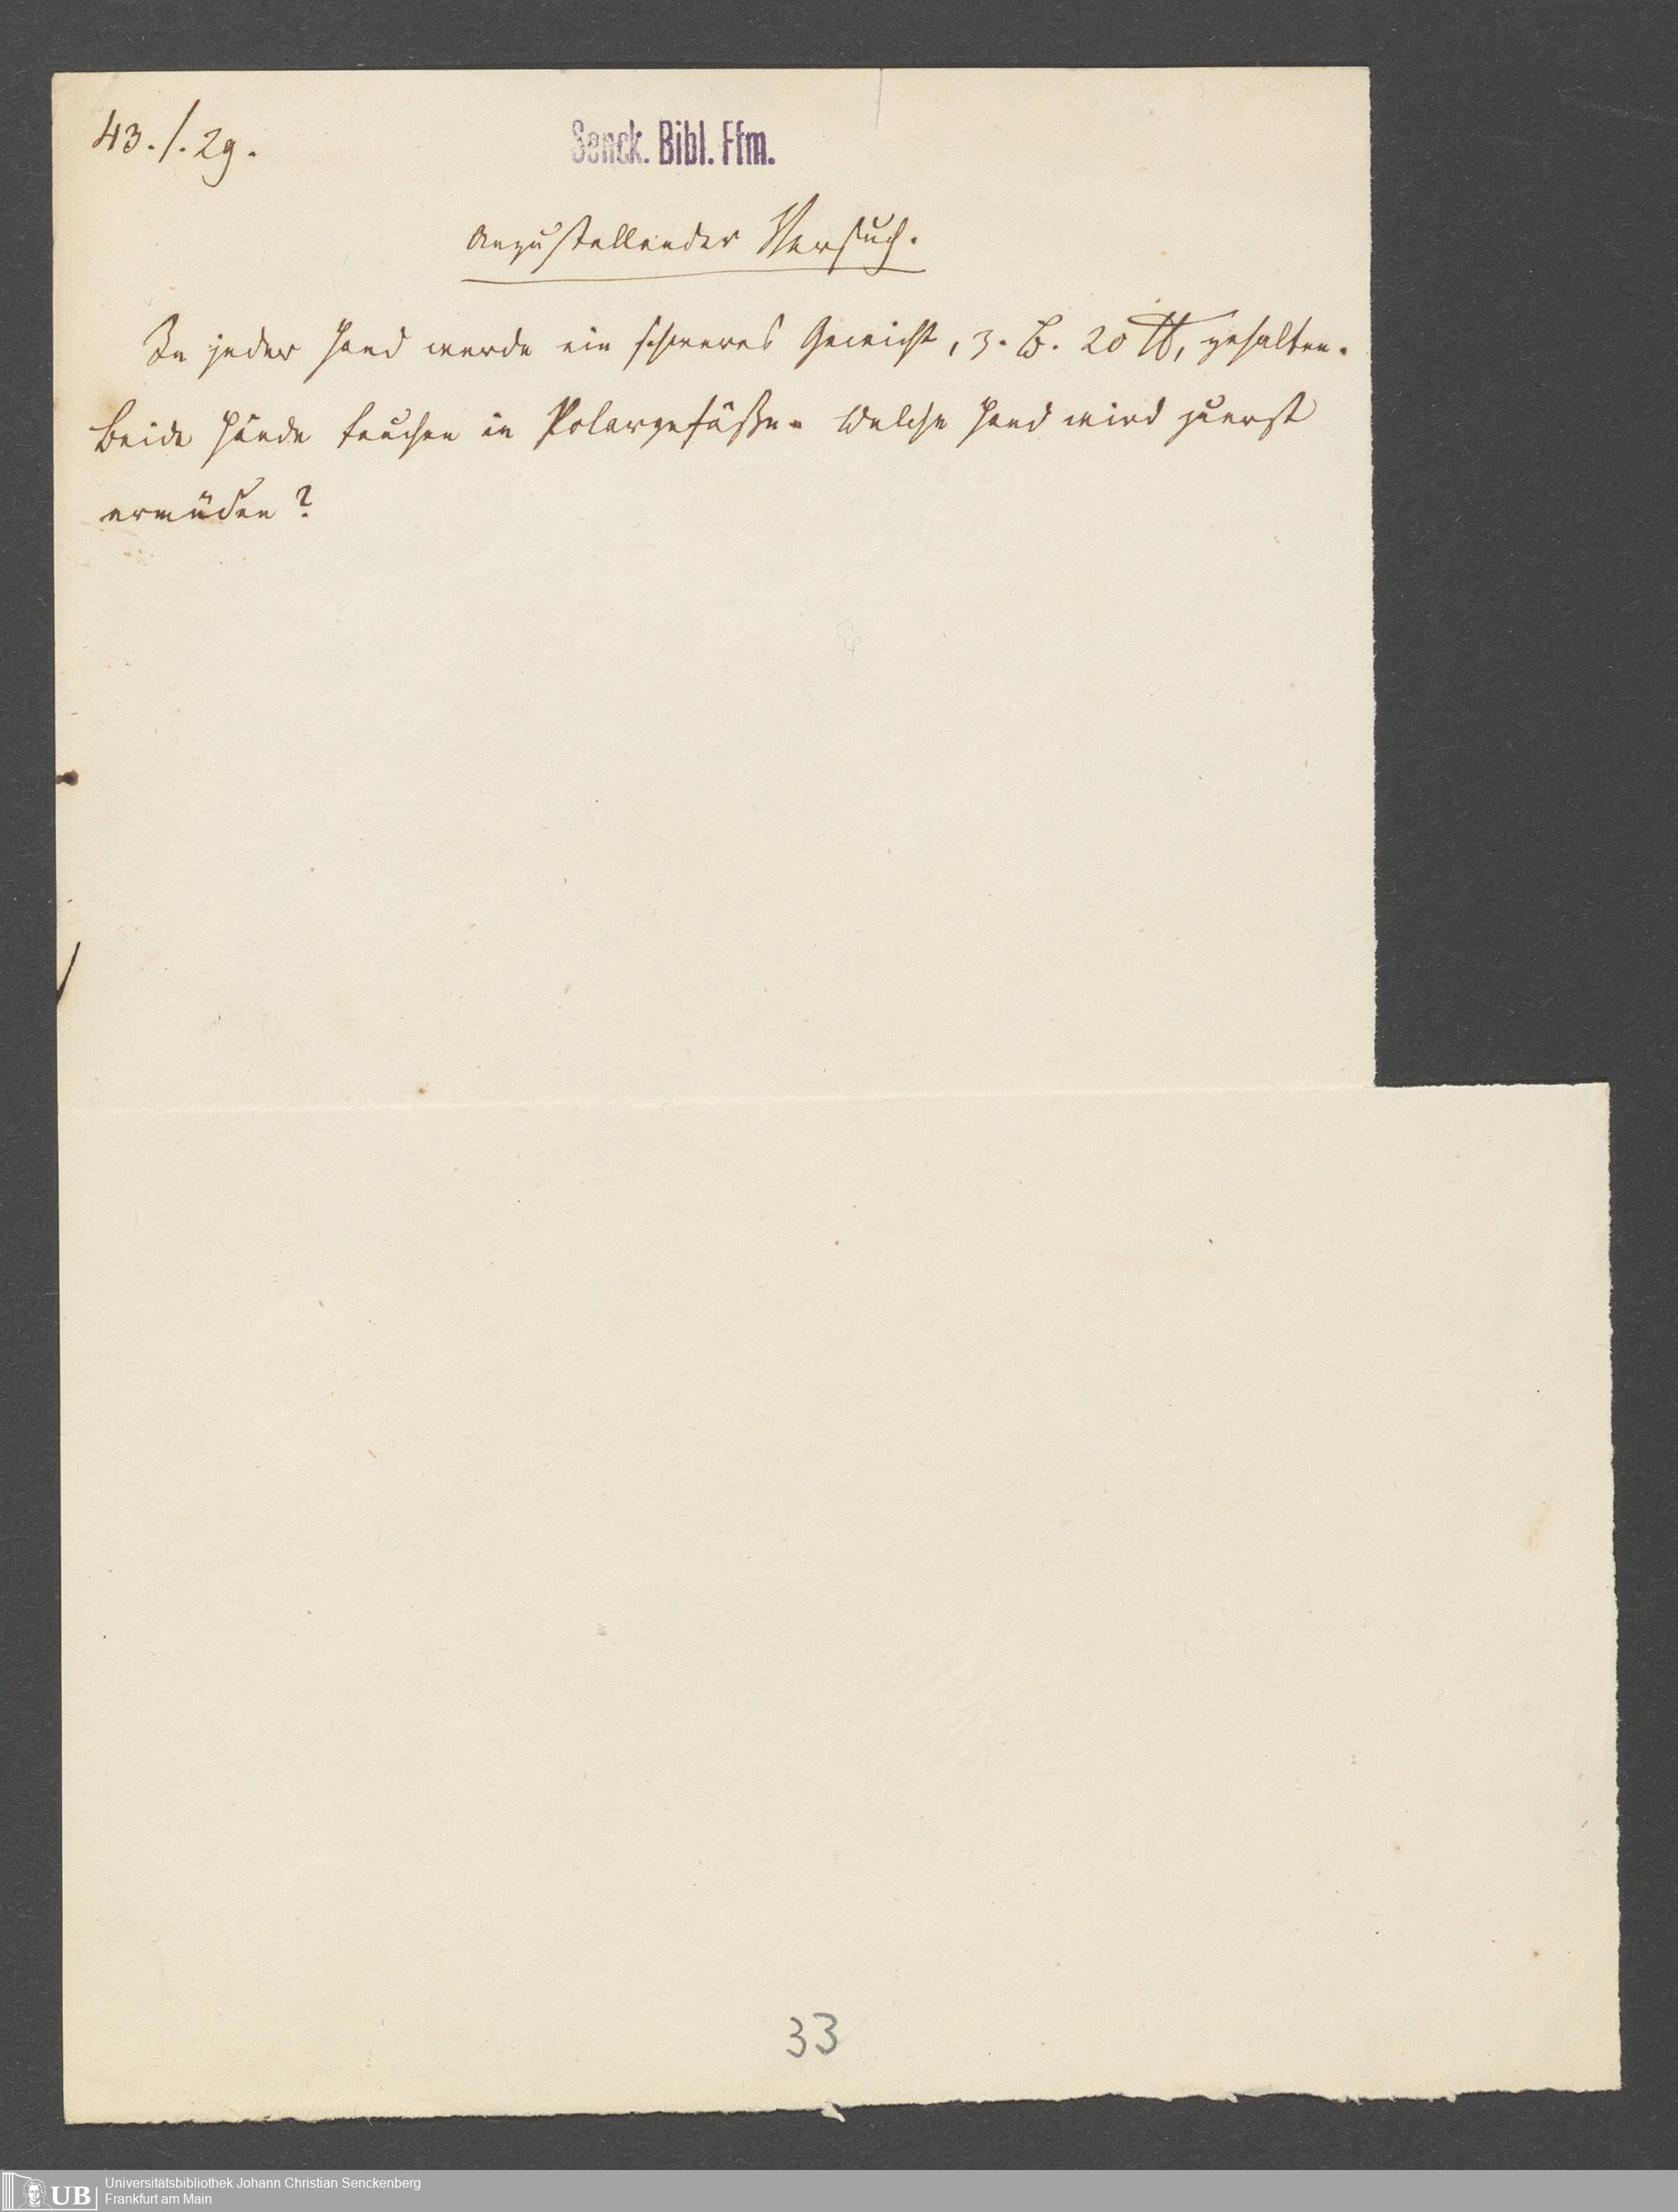 43./.29.
Senck. Bibl. Ffm.
Anzustellender Versuch.
In jeder Hand werde ein schweres Gewicht, z. B. 20 ℔, gehalten.
Beide Hände tauchen in Polargefäße. Welche Hand wird zuerst
ermüden?
33
UB Universitätsbibliothek Johann Christian Senckenberg
Frankfurt am Main